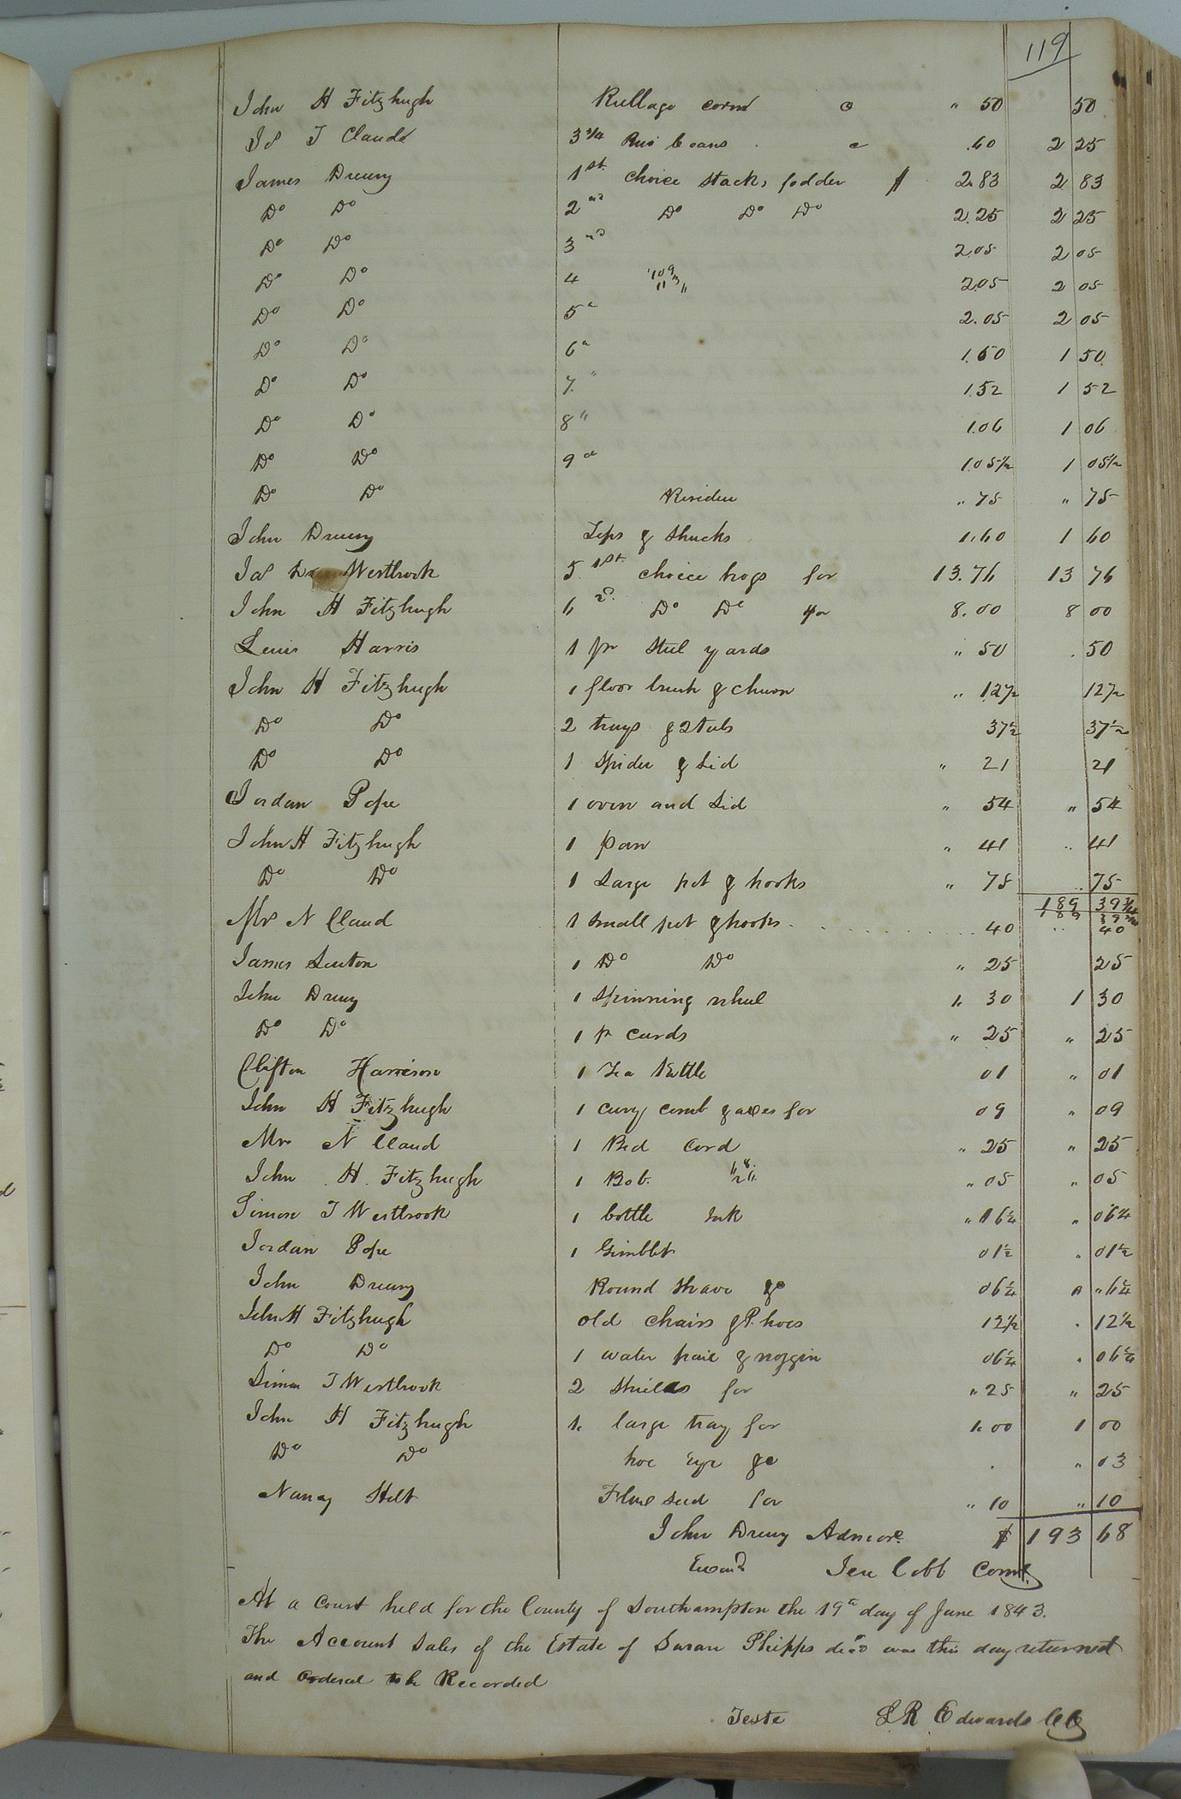 119
John H Fitzhugh corn " 50 50
Js T Claud 3 3/4 beans .60 2 25
James Drewry 1st choice stack fodder $ 2.83 2 83
Do Do 2nd Do Do Do 2.25 2 25
Do Do 3rd 2.05 2 05
Do Do 4 2.05 2 05
Do Do 5 " 2.05 2 05
Do Do 6 " 1.50 1 50
Do Do 7 " 1.52 1 52
Do Do 8 " 1.06 1 06
Do Do 9 " 1.05 1/2 1 05 1/2
Do Do Residue " 75 " 75
John Drewry Tops & shucks 1.60 1 60
Js Westbrook 5 1st choice hogs for 13.76 13 76
John H Fitzhugh 6 2d Do Do for 8.00 8 00
Lewis Harris 1 pr Steel yards " 50 . 50
John H Fitzhugh 1 floor brush & churn " 12 1/2 12 1/2
Do Do 2 trays & 2 tubs 37 1/2 37 1/2
Do Do 1 Spider & Lid " 21 21
Jordan Pope 1 oven and Lid " 54 " 54
John H Fitzhugh 1 pan " 41 " 41
Do Do 1 Large pot & hooks " 75 " 75
189 39 3/4
189 39 3/4
Mrs N Claud 1 small pot & hooks 40 " 40
James Senton 1 Do Do " 25 25
John Drewry 1 Spinning wheel 1. 30 1 30
Do Do 1 pr cards " 25 " 25
Clifton Harrison 1 Tea Kettle 01 " 01
John H Fitzhugh 1 curry comb & axes for 09 " 09
Mrs N Claud 1 Bed Cord " 25 " 25
John H. Fitzhugh 1 Box " 05 " 05
Simon T Westbrook 1 bottle Ink " 06 1/4 " 06 1/4
Jordan Pope 1 Gimblet 01 1/2 " 01 1/2
John Drewry Round Shave &c 06 1/4 " 6 1/4
John H Fitzhugh old chairs & P. hoes 12 1/2 . 12 1/2
Do Do 1 water pail & noggin 06 1/4 " 06 1/4
Simon T Westbrook 2 for " 25 " 25
John H Fitzhugh 1. large tray for 1.00 1 00
Do Do hoe &c . " 03
Nancy Holt seed for " 10 " 10
John Drewry Admor. $ 193 68
Exam'd Jere Cobb Comr.
At a Court held for the County of Southampton the 19th day of June 1843.
The Account Sales of the Estate of Susan Phipps dec'd was this day returned
and Ordered to be Recorded
Teste L R Edwards CC